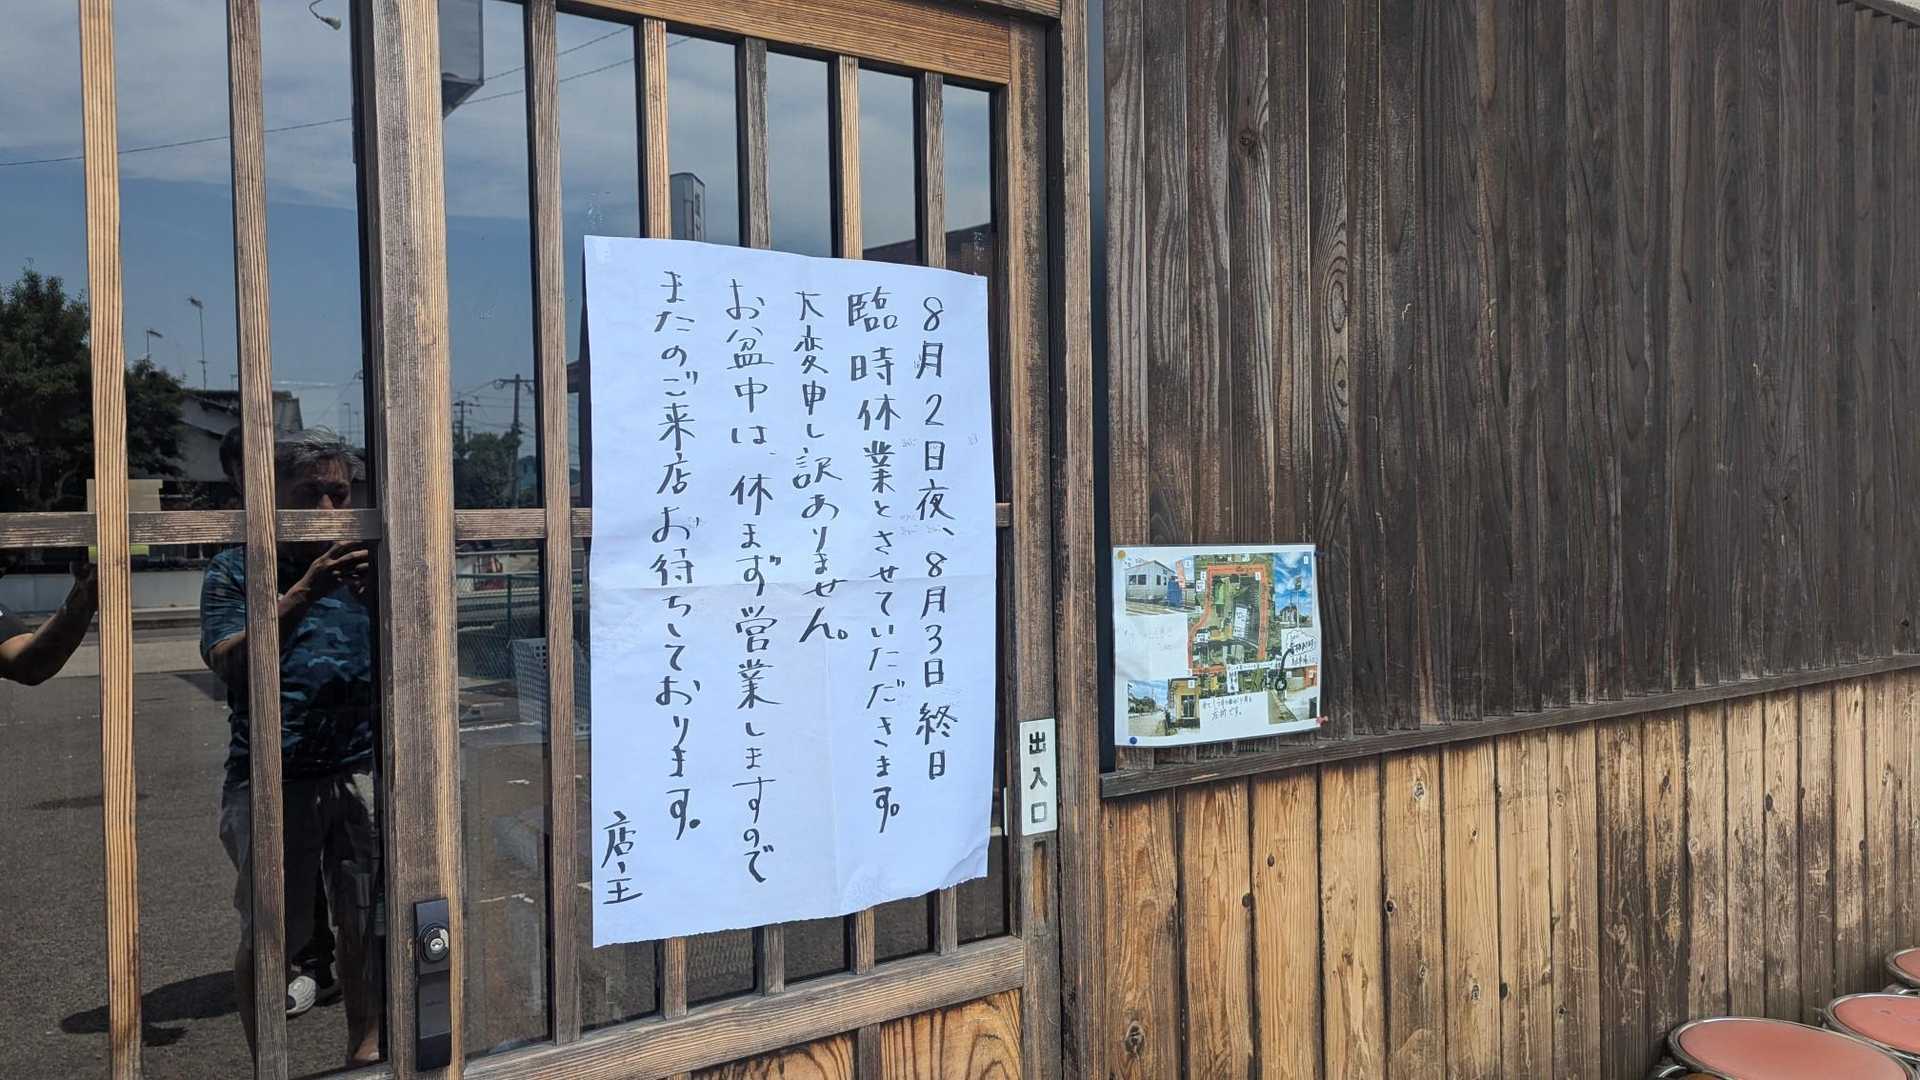 8月2日夜、8月3日終日
臨時休業とさせていただきます。
大変申し訳ありません。
お盆中は、休まず営業しますので
またのご来店お待ちしております。
店主
出入口